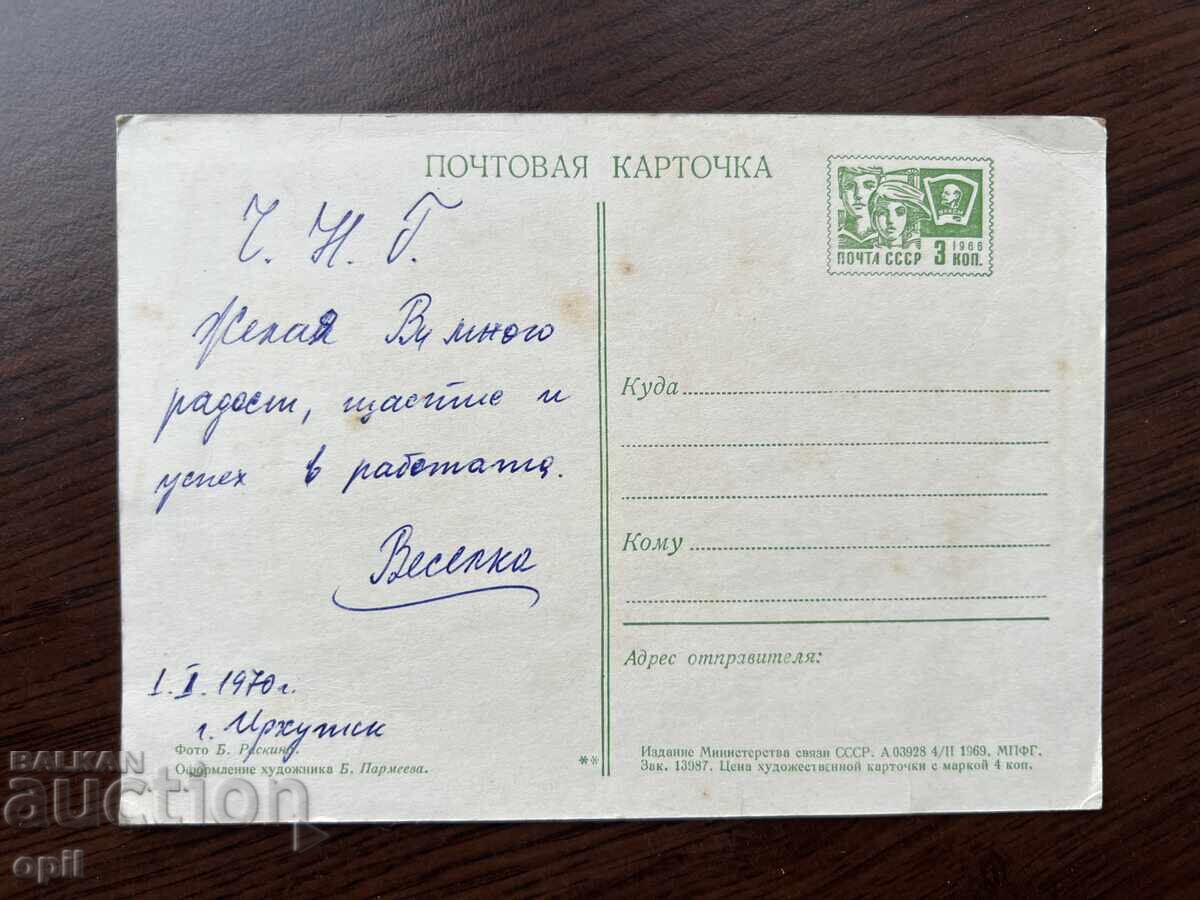 ПОЧТОВАЯ КАРТОЧКА
Ч. Н. Г.
Желая Ви много
радост, щастие и
успех в работата.
Веселка
1.I.1970 г.
г. Иркутск
Фото Б. Раскина.
Оформление художника Б. Пармеева.
**
ВЛКСМ
1966
ПОЧТА СССР 3 КОП.
Куда
Кому
Адрес отправителя:
Издание Министерства связи СССР. А.03928 4/II 1969. МПФГ.
Зак. 13987. Цена художественной карточки с маркой 4 коп.
BALKAN
auction
opil